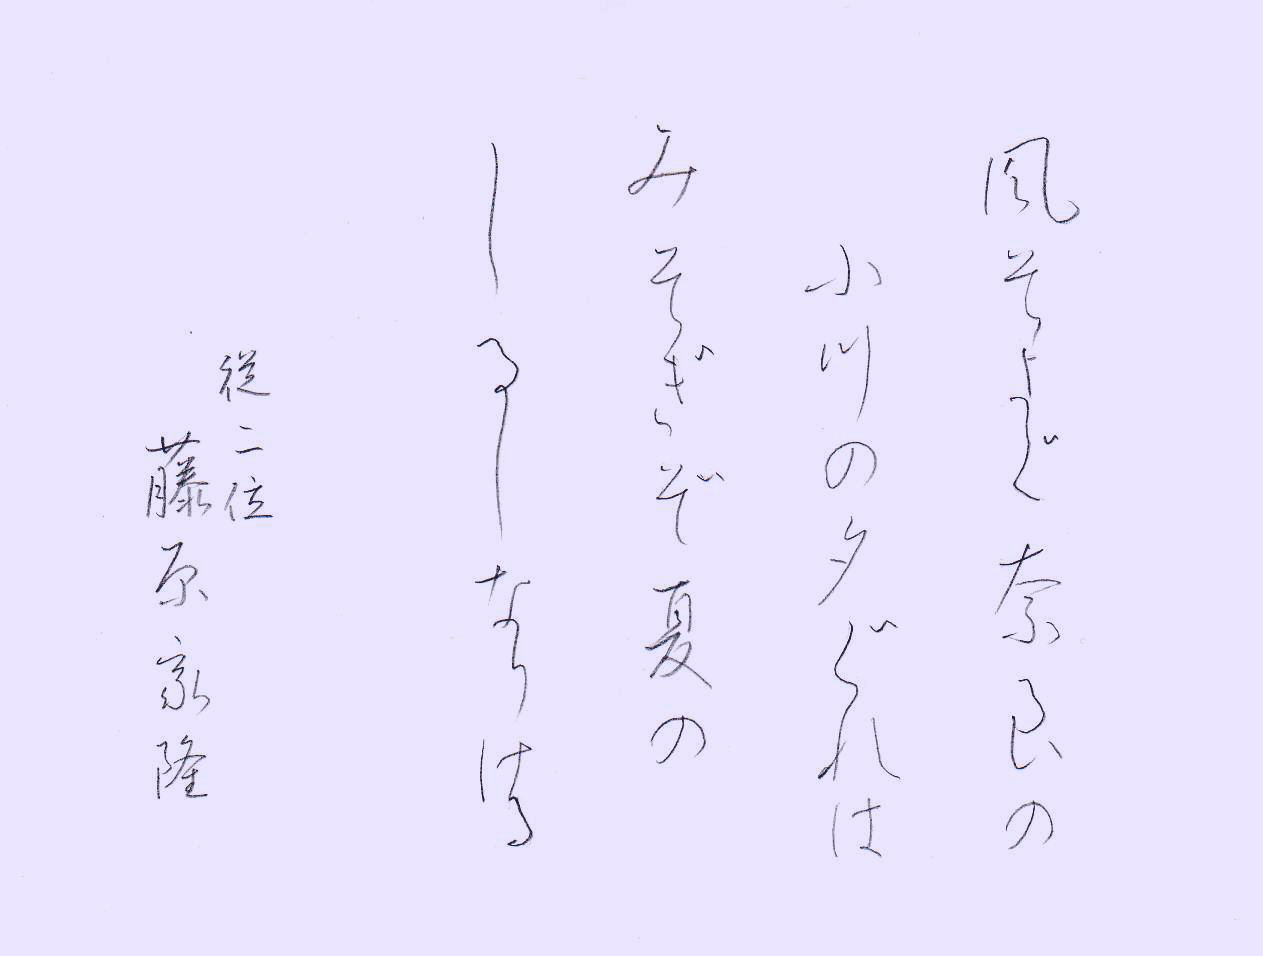 風そよぐ奈良の
小川の夕ぐれは
みそぎぞ夏の
しるしなりける
従二位
藤原家隆